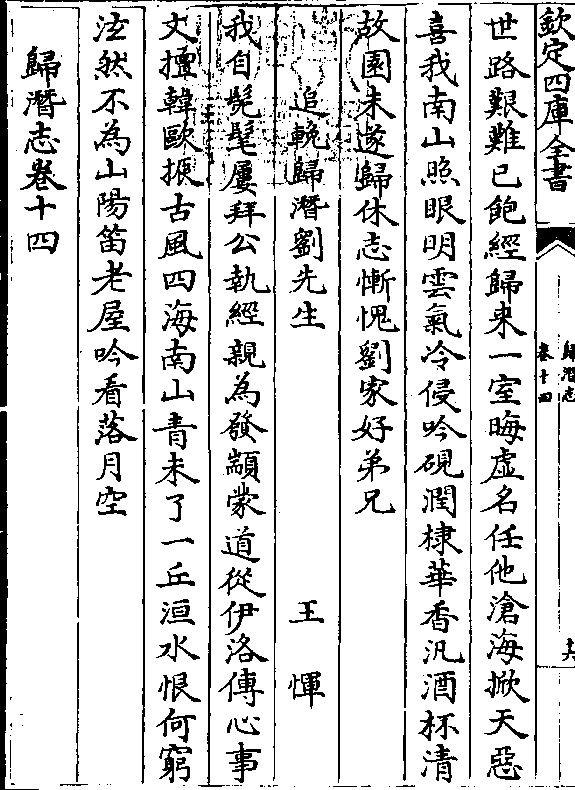 欽定四庫全書
歸潛志
卷十四
十六
世路艱難已飽經歸来一室晦虛名任他滄海掀天惡
喜我南山照眼明雲氣冷侵吟硯潤棣華香汎酒杯清
故園未遂歸休志慚愧劉家好弟兄
追輓歸潛劉先生
王惲
我自髧髦屢拜公執經親為發顓蒙道從伊洛傳心事
文擅韓歐振古風四海南山青未了一丘洹水恨何窮
泫然不為山陽笛老屋吟看落月空
歸潛志卷十四